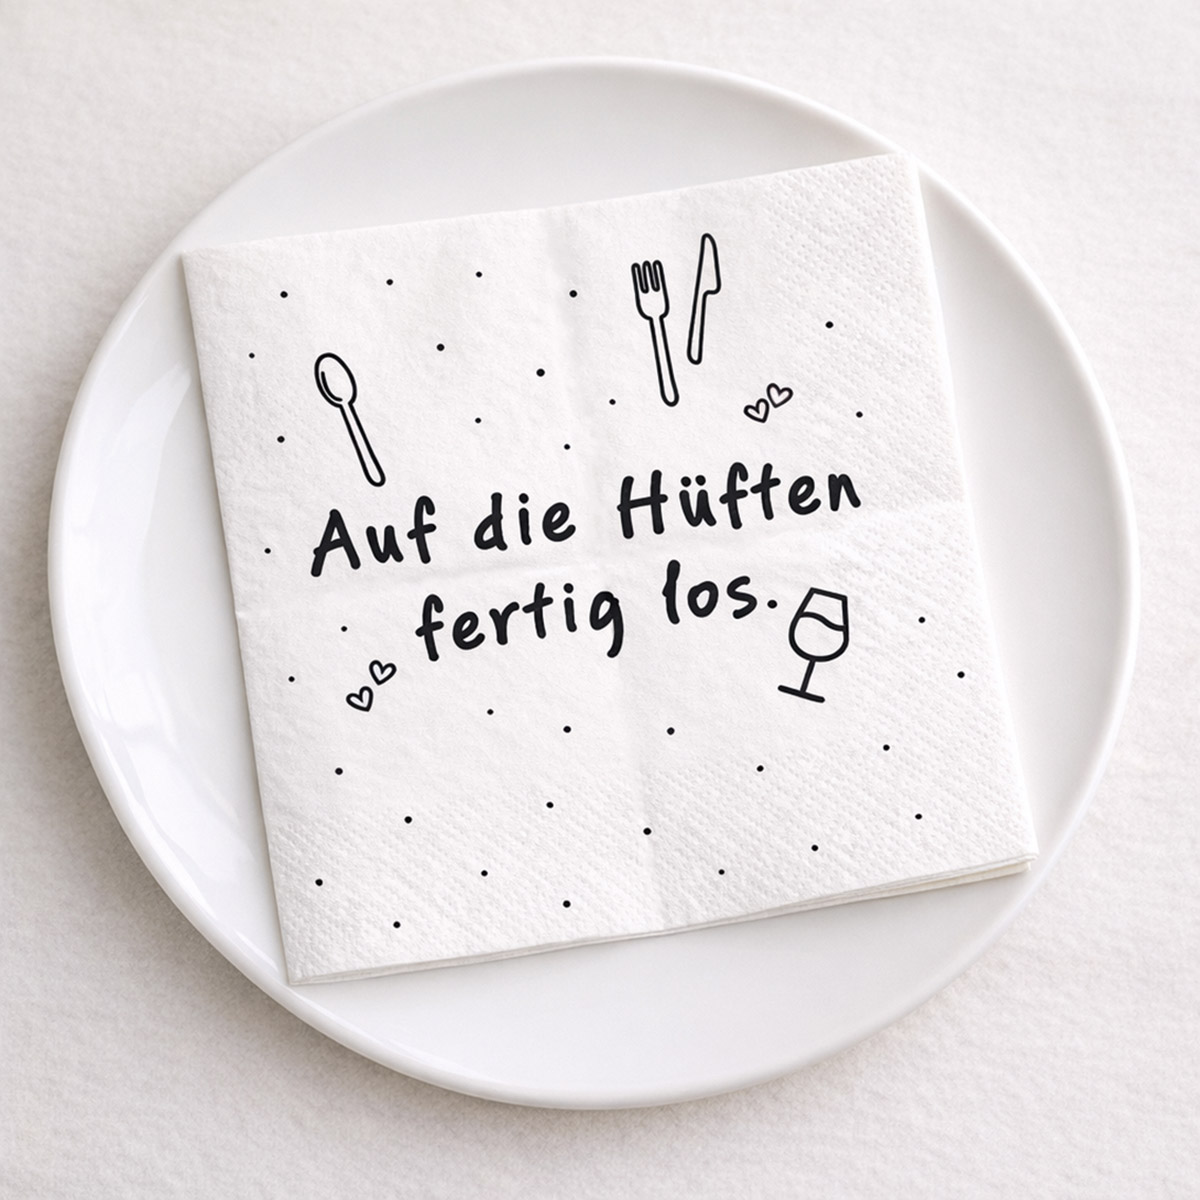 Auf die Hüften
fertig los.